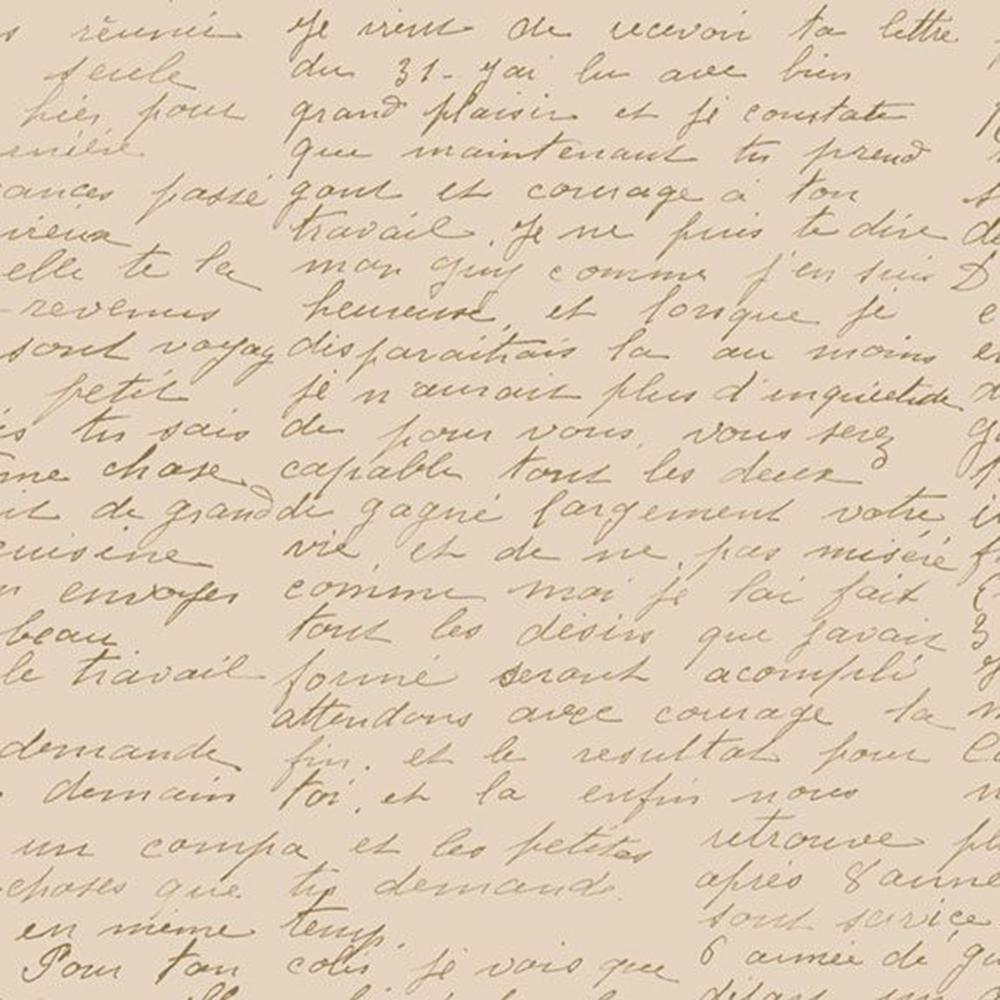 s réunié
seule
hier pour
enière
ances passé
elle te la
revenus
sont voyag
petit
is tu sais
me chose
it de grand
cuisine
n envoyer
beau
le travail
demande
demain
un compa et les petites
choses que tu demand
en même temp
Pour ton colis je vois que
Je vient de recevoir ta lettre
du 31 - J'ai lu avec bien
grand plaisir et je constate
que maintenant tu prend
gout et courage à ton
travail. Je ne puis te dire
mon Guy comme j'en suis
heureuse, et lorsque je
disparaitrais la au moins
je n'aurait plus d'inquietude
de pour vous, vous serez
capable tout les deux
de gagné largement votre
vie et de ne pas miséré
comme moi je lai fait
tout les désirs que javait
formé seront acompli
attendons avec courage la
fin, et le resultat pour
toi, et la enfin nous
retrouve
après 8 anne
sont service
6 année de gu